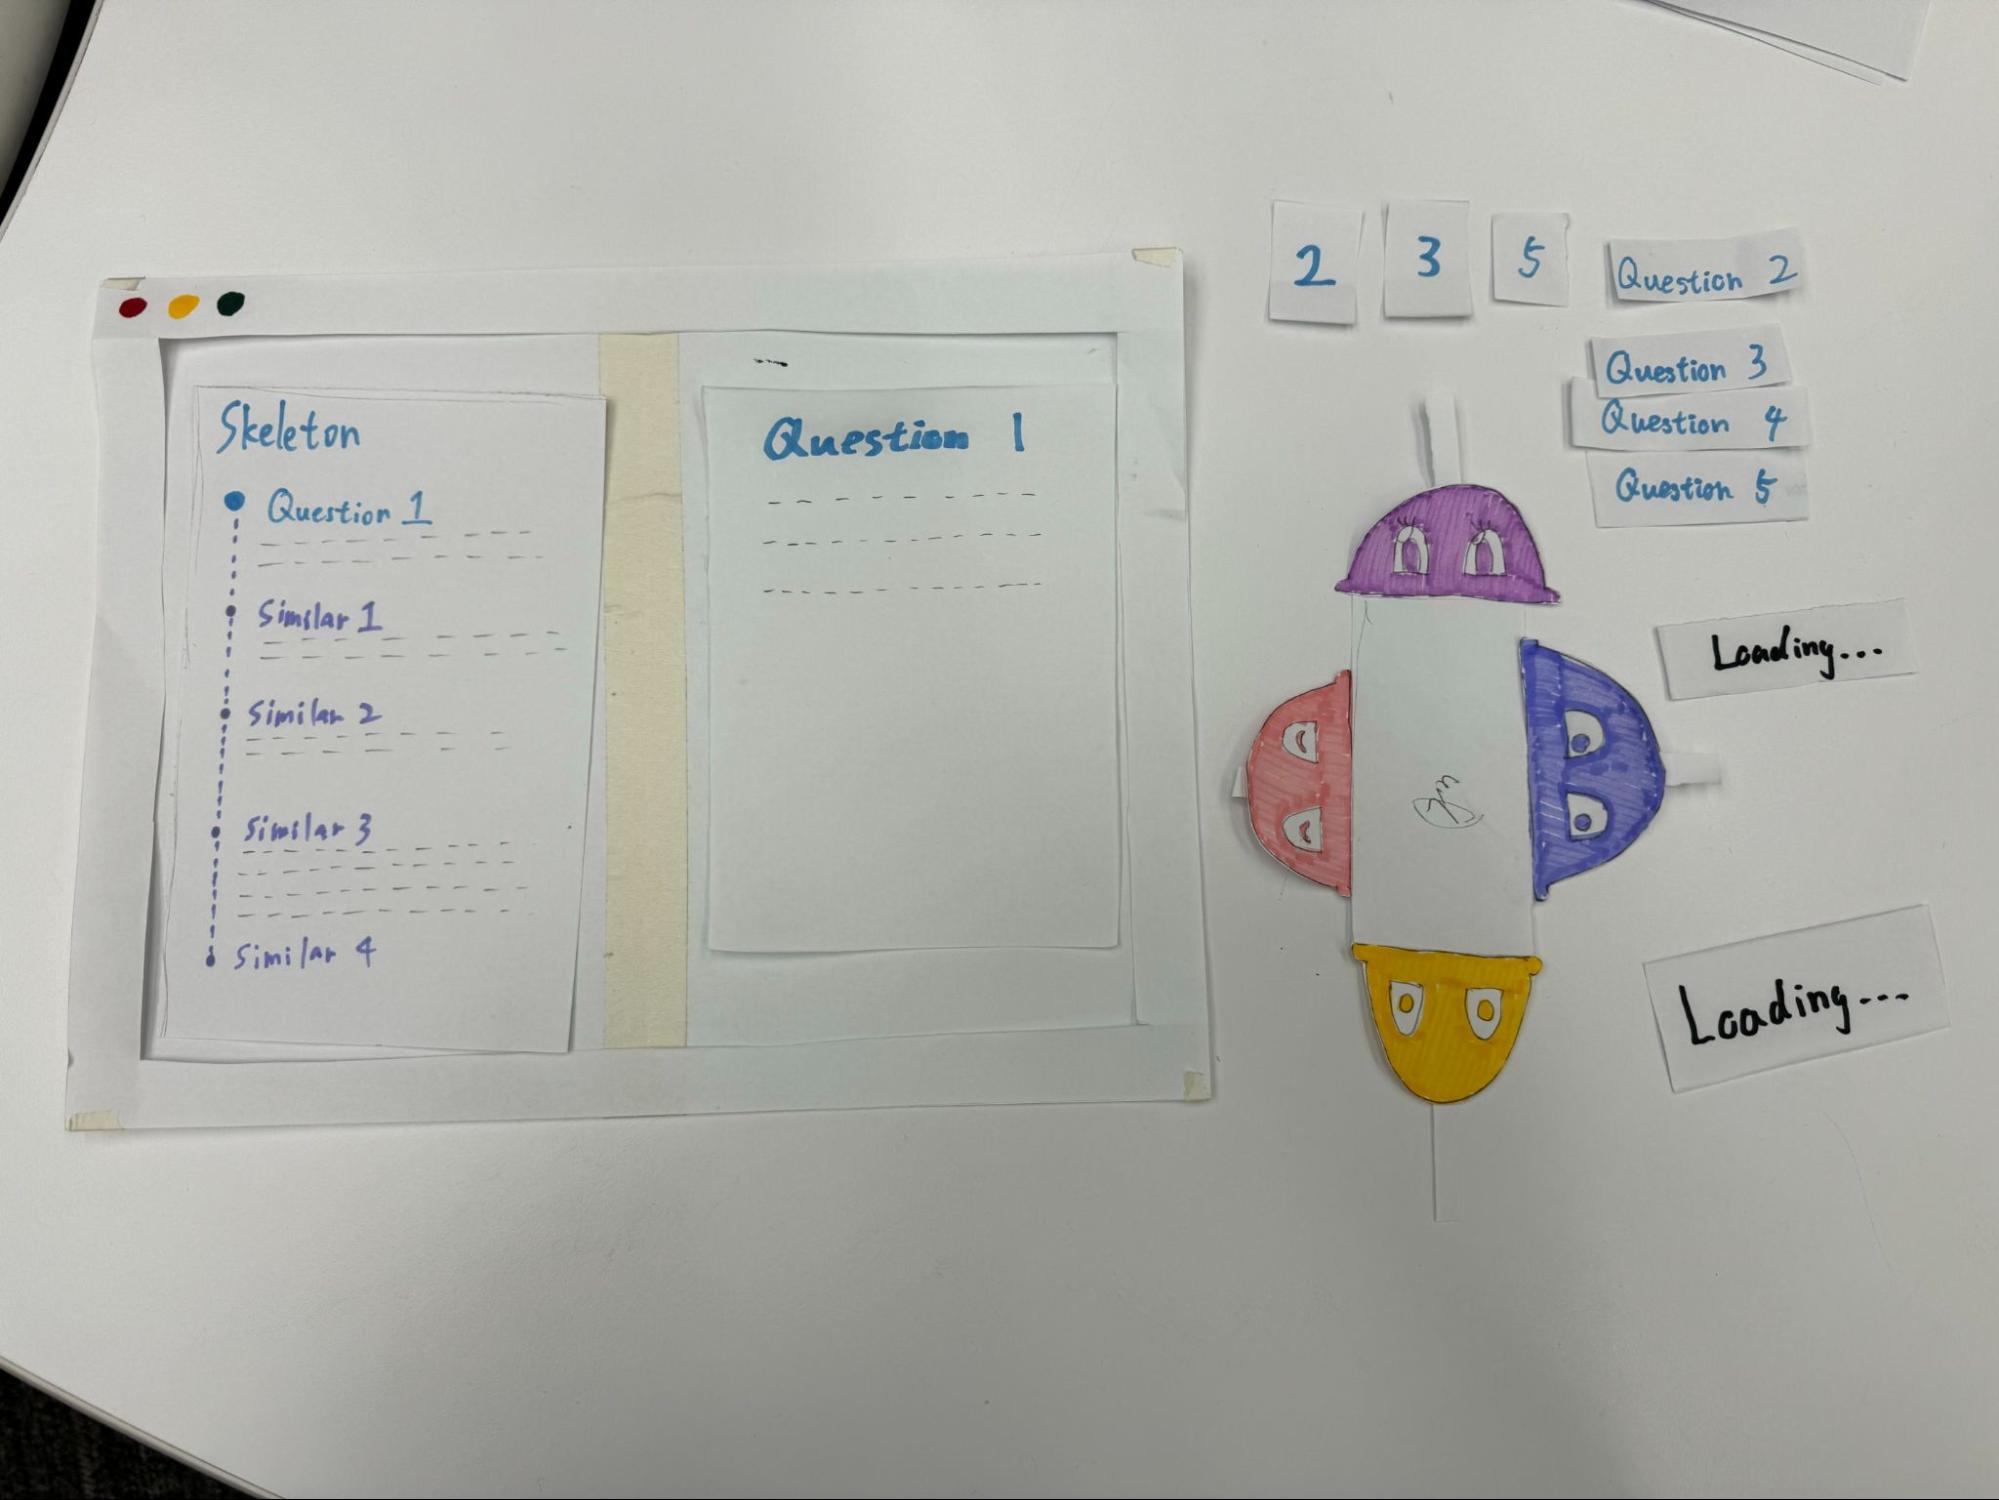 Skeleton
Question 1
Similar 1
Similar 2
Similar 3
Similar 4
Question 1
2
3
5
Question 2
Question 3
Question 4
Question 5
Loading...
Loading...